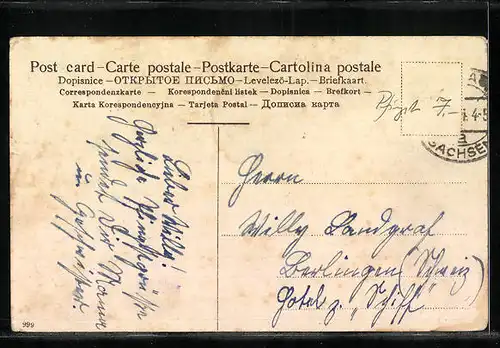 Post card – Carte postale – Postkarte – Cartolina postale
Dopisnice – ОТКРЫТОЕ ПИСЬМО – Levelező-Lap. – Briefkaart.
Correspondenzkarte – Korespondenční lístek – Dopisnica – Brefkort –
Karta Korespondencyjna – Tarjeta Postal – Дописна карта
Pfingst 7.–
SACHSEN
Lieber Willy!
Herzliche Pfingstgrüsse
sendet Dir Mama
u. Geschwister.
Herrn
Willy Landgraf
Berlingen (Schweiz)
Hotel z. "Schiff"
999